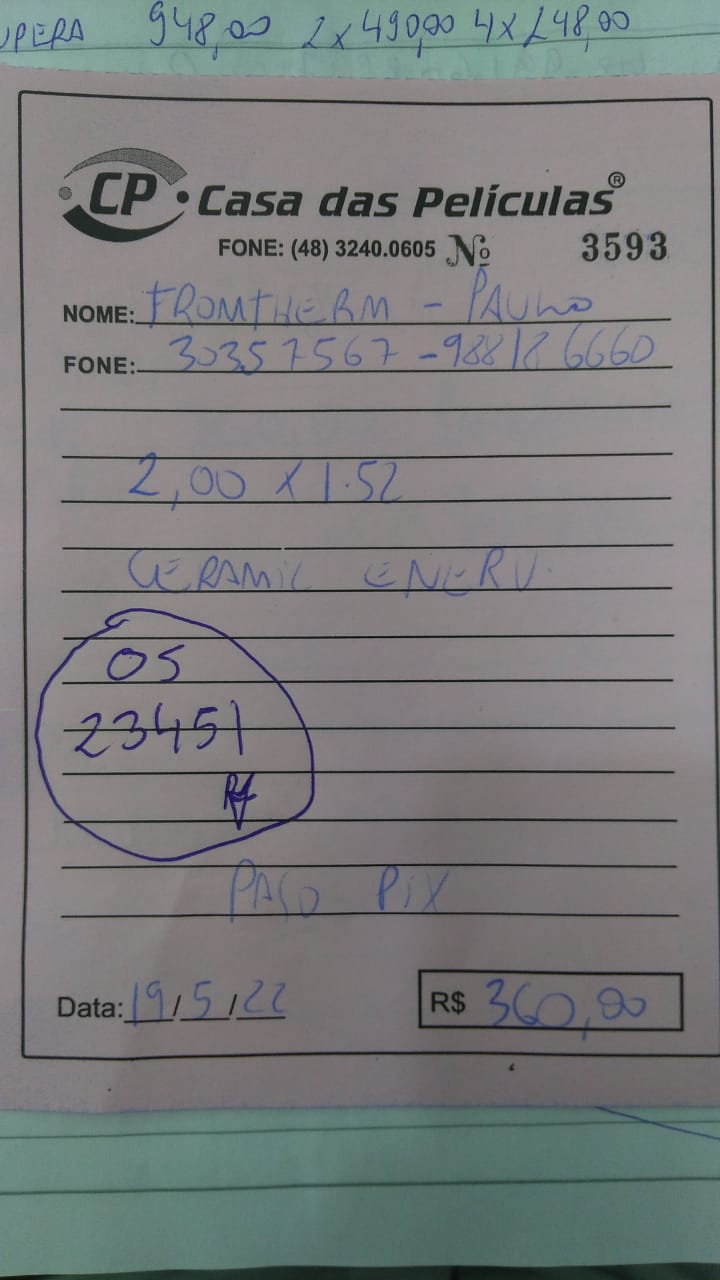 UPERA 948,00 2 x 490,00 4 x 248,00
CP · Casa das Películas®
FONE: (48) 3240.0605 Nº 3593
NOME: FROMTHERM - PAULO
FONE: 30357567 - 98818 6660
2,00 X 1.52
CERAMIC ENERV.
OS
23451
PAGO PIX
Data: 19/5/22 R$ 360,00